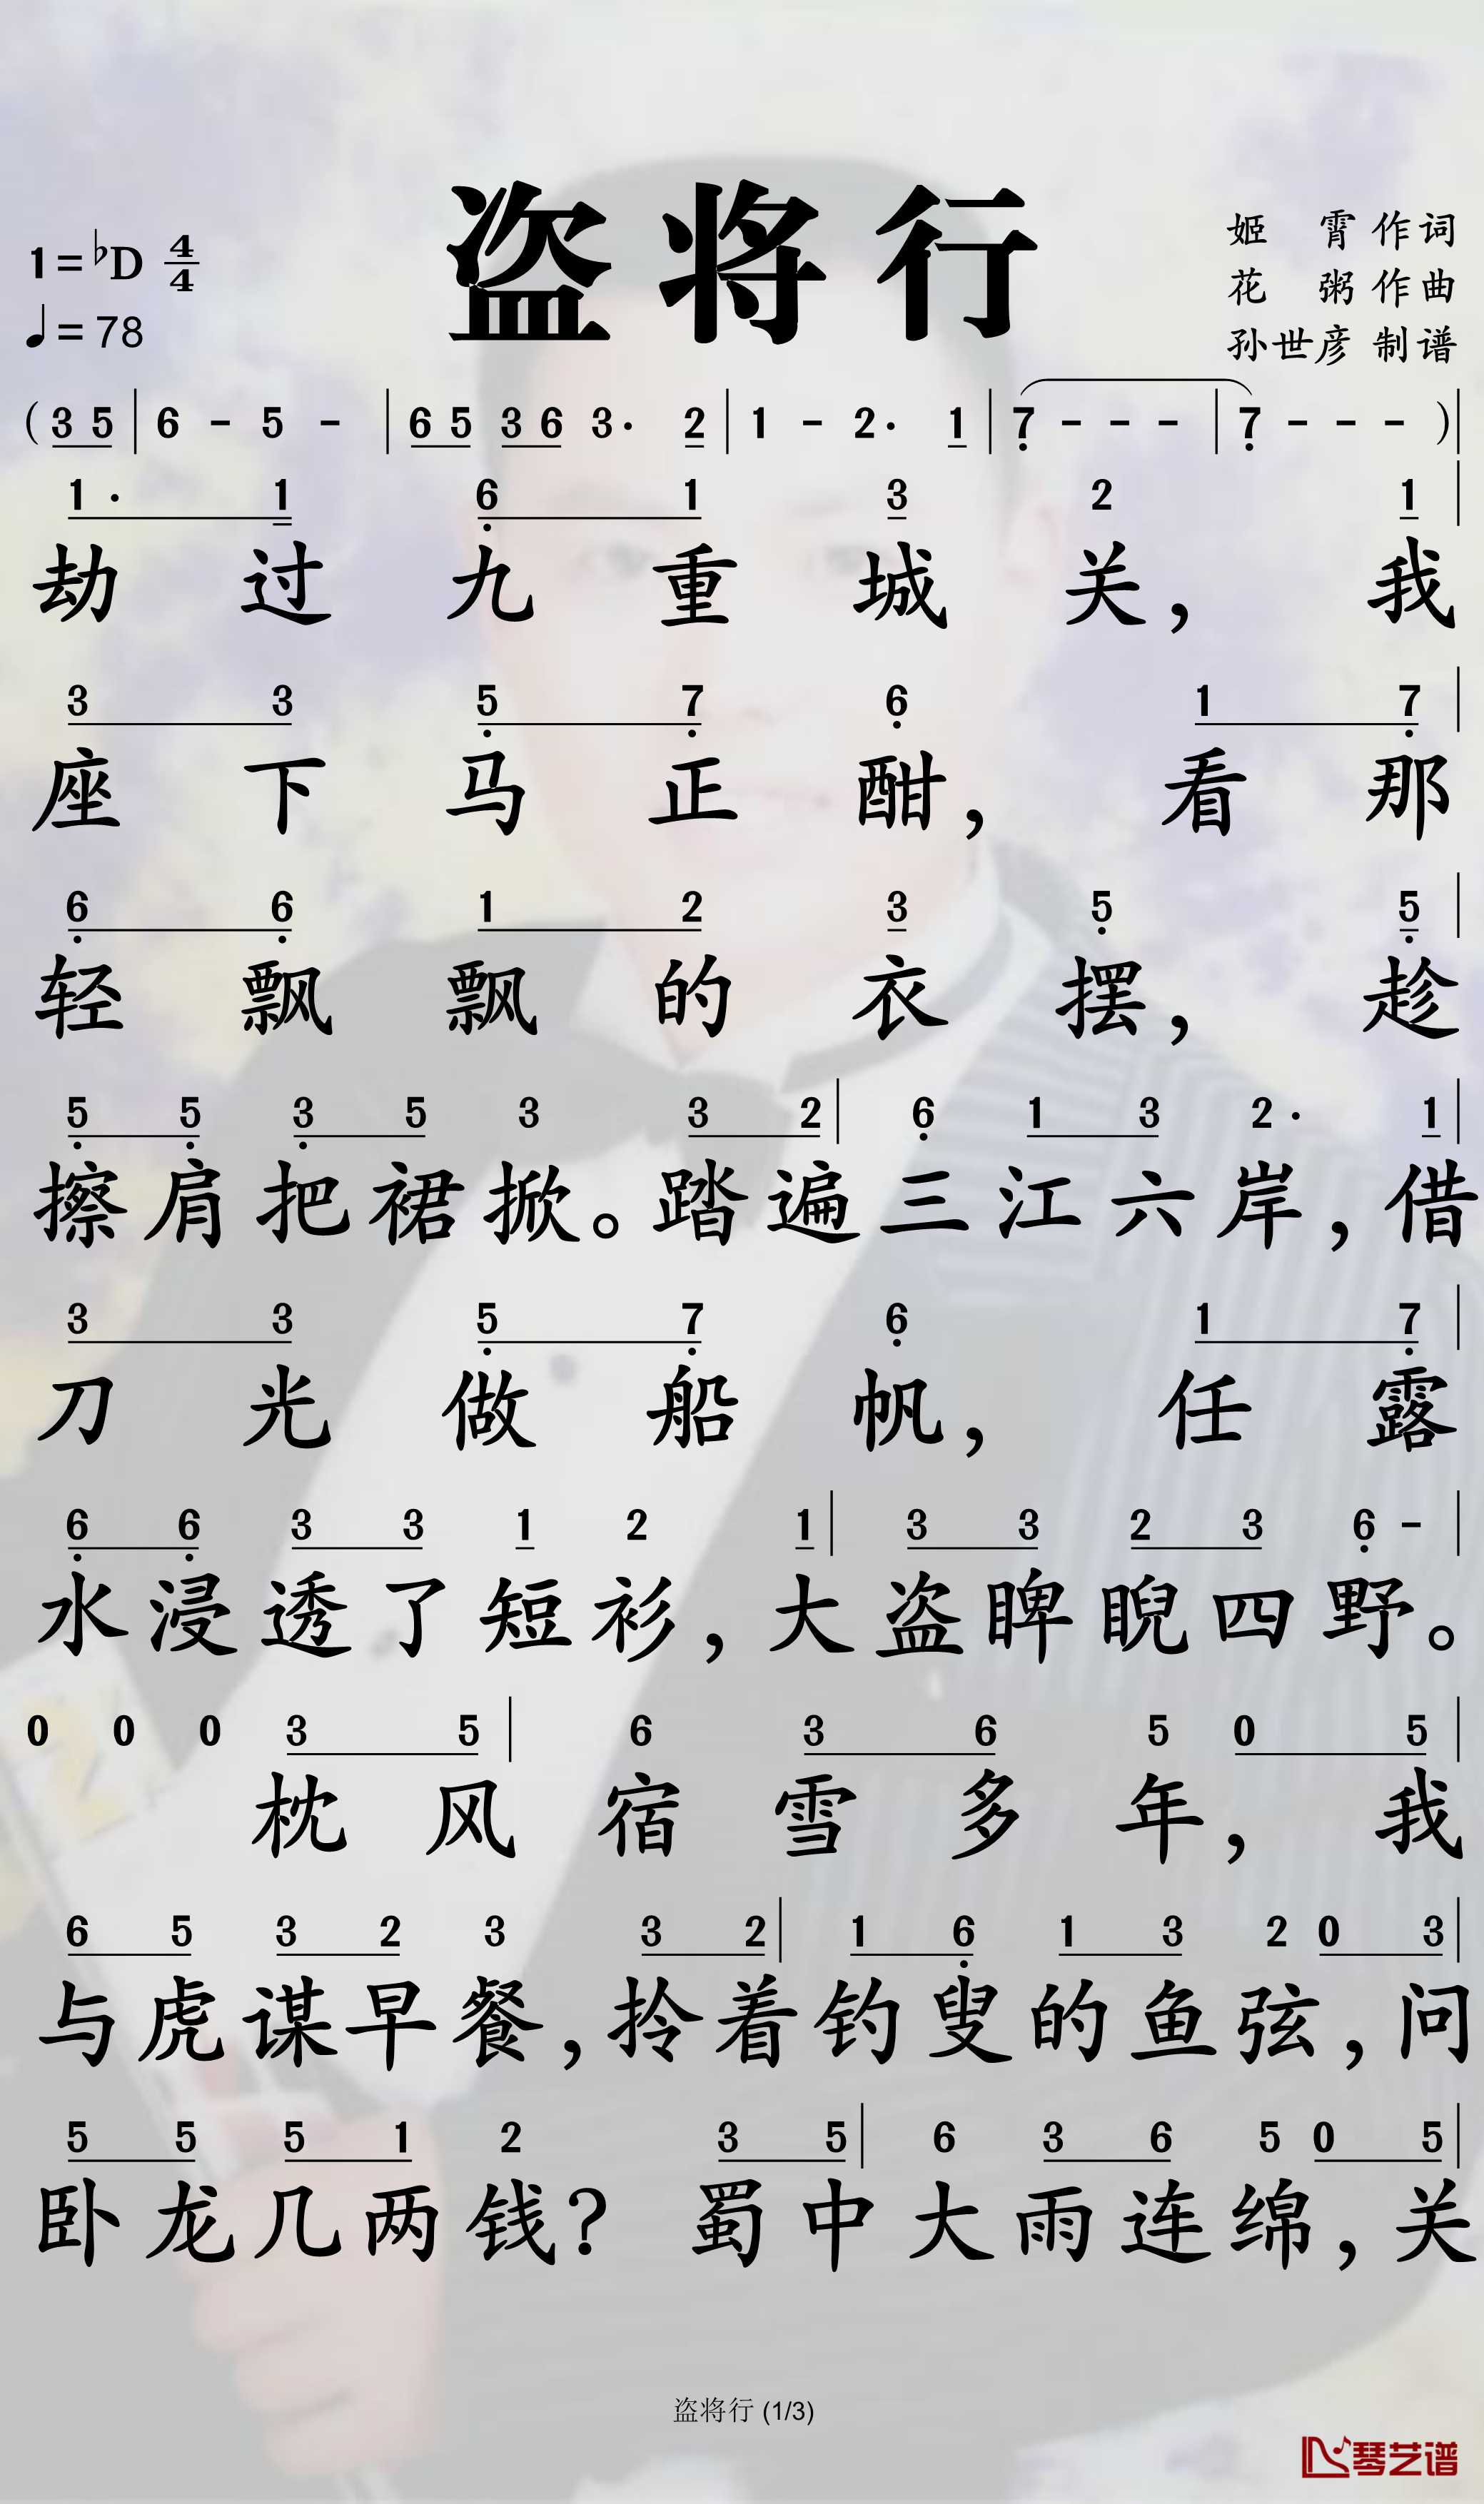 盗将行
1=♭D 4/4
♩=78
姬霄 作词
花粥 作曲
孙世彦 制谱
( 3 5 | 6 - 5 - | 6 5 3 6 3 · 2 | 1 - 2 · 1 | 7 - - - | 7 - - - ) |
1 · 1 6 1 3 2 1 |
劫过九重城关，我
3 3 5 7 6 1 7 |
座下马正酣，看那
6 6 1 2 3 5 5 |
轻飘飘的衣摆，趁
5 5 3 5 3 3 2 | 6 1 3 2 · 1 |
擦肩把裙掀。踏遍三江六岸，借
3 3 5 7 6 1 7 |
刀光做船帆，任露
6 6 3 3 1 2 1 | 3 3 2 3 6 - |
水浸透了短衫，大盗睥睨四野。
0 0 0 3 5 | 6 3 6 5 0 5 |
枕风宿雪多年，我
6 5 3 2 3 3 2 | 1 6 1 3 2 0 3 |
与虎谋早餐，拎着钓叟的鱼弦，问
5 5 5 1 2 3 5 | 6 3 6 5 0 5 |
卧龙几两钱？蜀中大雨连绵，关
盗将行 (1/3)
琴艺谱